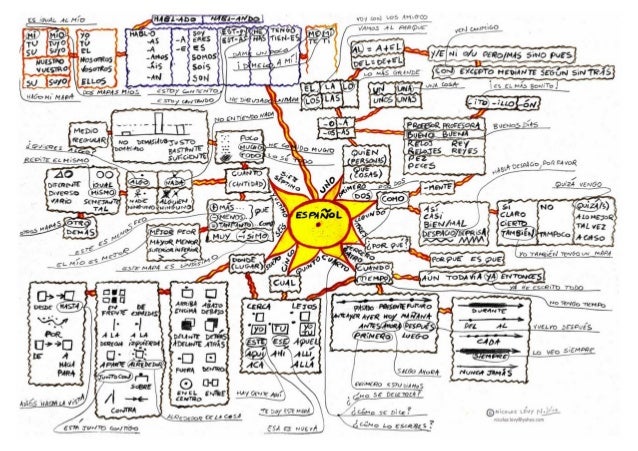 ES IGUAL AL MÍO
MÍ MÍO
TU TUYO
SU SUYO
NUESTRO
VUESTRO
SU SUYO
YO
TU
EL
NOSOTROS
VOSOTROS
ELLOS
HAGO MI MAPA
DOS MAPAS MIOS
HABLADO HABL-ANDO
HABL-O
-AS
-A
-AMOS
-ÁIS
-AN
SOY
ERES
ES
SOMOS
SOIS
SON
ESTOY CONTENTO
ESTOY CANTANDO
TENGO
TIEN-ES
ME MI
TE TI
¡DÍMELO A MÍ!
HE DIBUJADO NADA
VOY CON LOS AMIGOS
VAMOS AL PARQUE
VEN CONMIGO
AL = A+EL
DEL = DE+EL
LO MÁS GRANDE
Y/E NI O/U PERO/MAS SINO PUES
CON EXCEPTO MEDIANTE SEGÚN SIN TRAS
UNA COSA
¡ES EL MAS BONITO!
EL LA LO
LOS LAS
UN UNA
UNOS UNAS
-ITO -ILLO -ÓN
-O -A
-OS -AS
PROFESOR PROFESORA
BUENO BUENA
RELOJ REY
RELOJES REYES
PEZ
PECES
BUENOS DÍAS
QUIÉN
(PERSONAS)
QUE
(COSAS)
NO ENTIENDO NADA
MEDIO
REGULAR
NO DEMASIADO JUSTO
BASTANTE
SUFICIENTE
POCO
MUCHO
TODO
HE COMIDO MUCHO
LO SÉ TODO
REPITE EL MISMO
DIFERENTE
DIVERSO
VARIO
IGUAL
MISMO
SEMEJANTE
TAL
ALGO NADA
NADIE ALGUIEN
NINGUNO
OTRO
DEMÁS
OTROS MAPAS
CUANTO
(CANTIDAD)
MÁS
MENOS
TAN(TO)
QUE
COMO
MUY -ÍSIMO
MEJOR PEOR
MAYOR MENOR
SUPERIOR INFERIOR
EL MÍO ES MEJOR
ESTE MAPA ES LINDÍSIMO
ESPAÑOL
UNO
PRIMERO
DOS
SEGUNDO
TRES
CUATRO
CUARTO
CINCO
QUINTO
SEIS
SEXTO
SIETE
SEPTIMO
COMO
-MENTE
HABLA DESPACIO, POR FAVOR
ASÍ
CASI
BIEN/MAL
DESPACIO/DEPRISA
QUIZÁ VENGO
SI
CLARO
CIERTO
TAMBIÉN
NO
TAMPOCO
QUIZÁ(S)
A LO MEJOR
TAL VEZ
ACASO
YO TAMBIÉN TENGO UN MAPA
¿POR QUÉ?
PORQUE ES QUE
CUANDO
(TIEMPO)
AÚN TODAVÍA YA ENTONCES
YA HE ESCRITO TODO
DONDE
(LUGAR)
CUAL
DESDE HASTA
POR
DE A
HACIA
PARA
ENFRENTE
DE
ESPALDAS
A LA
DERECHA
A LA
IZQUIERDA
APARTE
ALREDEDOR
JUNTO CON
SOBRE
CONTRA
ARRIBA
ENCIMA
ABAJO
DEBAJO
DELANTE
DELANTE
DETRÁS
ATRÁS
FUERA
DENTRO
EN EL
CENTRO
ENTRE
CERCA LEJOS
YO TU SU
ESTE ESE AQUEL
AQUÍ AHÍ ALLÍ,
ACÁ ALLÁ
PASADO PRESENTE FUTURO
ANTEAYER AYER HOY MAÑANA
ANTES AHORA DESPUÉS
PRIMERO LUEGO
DURANTE
DEL AL
CADA
SIEMPRE
NUNCA JAMÁS
NO TENGO TIEMPO
VUELVO DESPUÉS
LO VEO SIEMPRE
SALGO AHORA
PRIMERO ESTUDIAMOS
¿CÓMO SE DELETREA?
¿CÓMO SE DICE?
¿CÓMO LO ESCRIBES?
ESTA JUNTO CONTIGO
ALREDEDOR DE LA COSA
HAY GENTE AQUÍ
TE DOY ESTE MAPA
ESA ES NUEVA